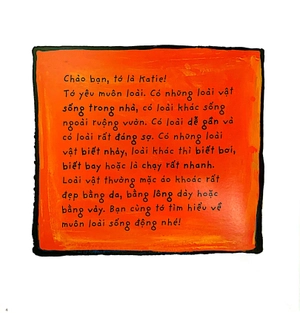 Chào bạn, tớ là Katie!
Tớ yêu muôn loài. Có những loài vật
sống trong nhà, có loài khác sống
ngoài ruộng vườn. Có loài dễ gần và
có loài rất đáng sợ. Có những loài
vật biết nhảy, loài khác thì biết bơi,
biết bay hoặc là chạy rất nhanh.
Loài vật thường mặc áo khoác rất
đẹp bằng da, bằng lông dày hoặc
bằng vảy. Bạn cùng tớ tìm hiểu về
muôn loài sống động nhé!